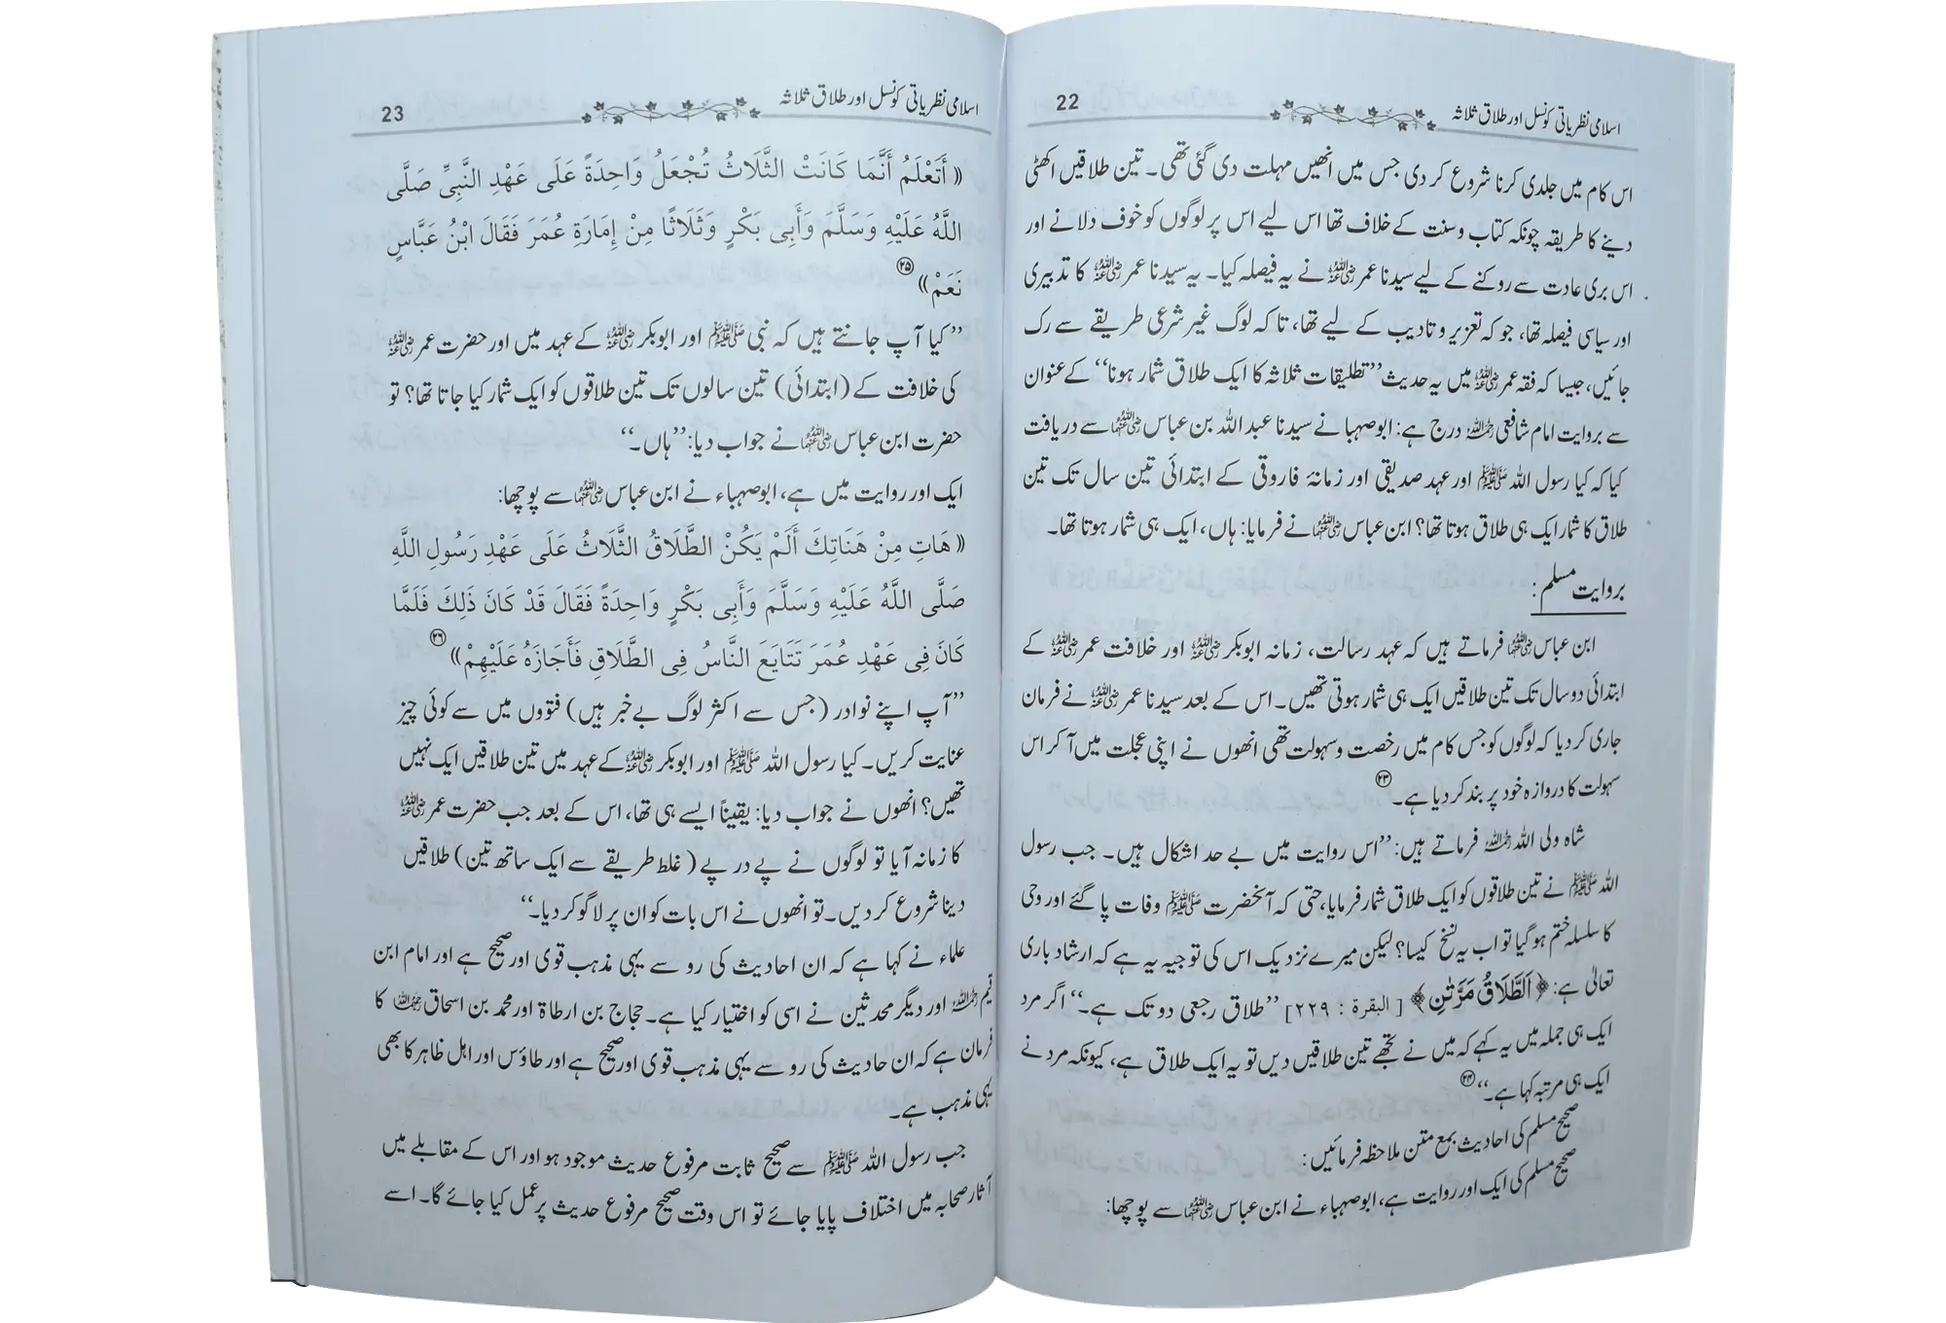 اسلامی نظریاتی کونسل اور طلاق ثلاثہ 22
اس کام میں جلدی کرنا شروع کر دی جس میں انھیں مہلت دی گئی تھی۔ تین طلاقیں اکھٹی
دینے کا طریقہ چونکہ کتاب و سنت کے خلاف تھا اس لیے اس پر لوگوں کو خوف دلانے اور
اس بری عادت سے روکنے کے لیے سیدنا عمر رضی اللہ عنہ نے یہ فیصلہ کیا۔ یہ سیدنا عمر رضی اللہ عنہ کا تدبیری
اور سیاسی فیصلہ تھا، جو کہ تعزیر و تادیب کے لیے تھا، تا کہ لوگ غیر شرعی طریقے سے رک
جائیں، جیسا کہ فقہ عمر رضی اللہ عنہ میں یہ حدیث ”تطلیقات ثلاثہ کا ایک طلاق شمار ہونا“ کے عنوان
سے بروایت امام شافعی رحمہ اللہ درج ہے: ابوصہبا نے سیدنا عبد اللہ بن عباس رضی اللہ عنہما سے دریافت
کیا کہ کیا رسول اللہ ﷺ اور عہد صدیقی اور زمانۂ فاروقی کے ابتدائی تین سال تک تین
طلاق کا شمار ایک ہی طلاق ہوتا تھا؟ ابن عباس رضی اللہ عنہما نے فرمایا: ہاں، ایک ہی شمار ہوتا تھا۔
بروایت مسلم:
ابن عباس رضی اللہ عنہما فرماتے ہیں کہ عہد رسالت، زمانہ ابوبکر رضی اللہ عنہ اور خلافت عمر رضی اللہ عنہ کے
ابتدائی دو سال تک تین طلاقیں ایک ہی شمار ہوتی تھیں۔ اس کے بعد سیدنا عمر رضی اللہ عنہ نے فرمان
جاری کر دیا کہ لوگوں کو جس کام میں رخصت و سہولت تھی انھوں نے اپنی عجلت میں آ کر اس
سہولت کا دروازہ خود پر بند کر دیا ہے۔ ۲۳
شاہ ولی اللہ رحمہ اللہ فرماتے ہیں: ”اس روایت میں بے حد اشکال ہیں۔ جب رسول
اللہ ﷺ نے تین طلاقوں کو ایک طلاق شمار فرمایا، حتی کہ آنحضرت ﷺ وفات پا گئے اور وحی
کا سلسلہ ختم ہو گیا تو اب یہ نسخ کیسا؟ لیکن میرے نزدیک اس کی توجیہ یہ ہے کہ ارشاد باری
تعالیٰ ہے: ﴿اَلطَّلَاقُ مَرَّتٰنِ﴾ [البقرة : ۲۲۹] ”طلاق رجعی دو تک ہے۔“ اگر مرد
ایک ہی جملہ میں یہ کہے کہ میں نے تجھے تین طلاقیں دیں تو یہ ایک طلاق ہے، کیونکہ مرد نے
ایک ہی مرتبہ کہا ہے۔“ ۲۴
صحیح مسلم کی احادیث بمع متن ملاحظہ فرمائیں:
صحیح مسلم کی ایک اور روایت ہے، ابوصہباء نے ابن عباس رضی اللہ عنہما سے پوچھا:
اسلامی نظریاتی کونسل اور طلاق ثلاثہ 23
((أَتَعْلَمُ أَنَّمَا كَانَتْ الثَّلَاثُ تُجْعَلُ وَاحِدَةً عَلَى عَهْدِ النَّبِيِّ صَلَّى
اللَّهُ عَلَيْهِ وَسَلَّمَ وَأَبِى بَكْرٍ وَثَلَاثًا مِنْ إِمَارَةِ عُمَرَ فَقَالَ ابْنُ عَبَّاسٍ
نَعَمْ)) ۲۵
”کیا آپ جانتے ہیں کہ نبی ﷺ اور ابوبکر رضی اللہ عنہ کے عہد میں اور حضرت عمر رضی اللہ عنہ
کی خلافت کے (ابتدائی) تین سالوں تک تین طلاقوں کو ایک شمار کیا جاتا تھا؟ تو
حضرت ابن عباس رضی اللہ عنہما نے جواب دیا: ”ہاں۔“
ایک اور روایت میں ہے، ابوصہباء نے ابن عباس رضی اللہ عنہما سے پوچھا:
((هَاتِ مِنْ هَنَاتِكَ أَلَمْ يَكُنْ الطَّلَاقُ الثَّلَاثُ عَلَى عَهْدِ رَسُولِ اللَّهِ
صَلَّى اللَّهُ عَلَيْهِ وَسَلَّمَ وَأَبِى بَكْرٍ وَاحِدَةً فَقَالَ قَدْ كَانَ ذَلِكَ فَلَمَّا
كَانَ فِى عَهْدِ عُمَرَ تَتَايَعَ النَّاسُ فِى الطَّلَاقِ فَأَجَازَهُ عَلَيْهِمْ)) ۲۶
”آپ اپنے نوادر (جس سے اکثر لوگ بے خبر ہیں) فتووں میں سے کوئی چیز
عنایت کریں۔ کیا رسول اللہ ﷺ اور ابوبکر رضی اللہ عنہ کے عہد میں تین طلاقیں ایک نہیں
تھیں؟ انھوں نے جواب دیا: یقیناً ایسے ہی تھا، اس کے بعد جب حضرت عمر رضی اللہ عنہ
کا زمانہ آیا تو لوگوں نے پے در پے (غلط طریقے سے ایک ساتھ تین) طلاقیں
دینا شروع کر دیں۔ تو انھوں نے اس بات کو ان پر لاگو کر دیا۔“
علماء نے کہا ہے کہ ان احادیث کی رو سے یہی مذہب قوی اور صحیح ہے اور امام ابن
قیم رحمہ اللہ اور دیگر محدثین نے اسی کو اختیار کیا ہے۔ حجاج بن ارطاۃ اور محمد بن اسحاق رحمہ اللہ کا
فرمان ہے کہ ان حادیث کی رو سے یہی مذہب قوی اور صحیح ہے اور طاؤس اور اہل ظاہر کا بھی
یہی مذہب ہے۔
جب رسول اللہ ﷺ سے صحیح ثابت مرفوع حدیث موجود ہو اور اس کے مقابلے میں
آثار صحابہ میں اختلاف پایا جائے تو اس وقت صحیح مرفوع حدیث پر عمل کیا جائے گا۔ اسے